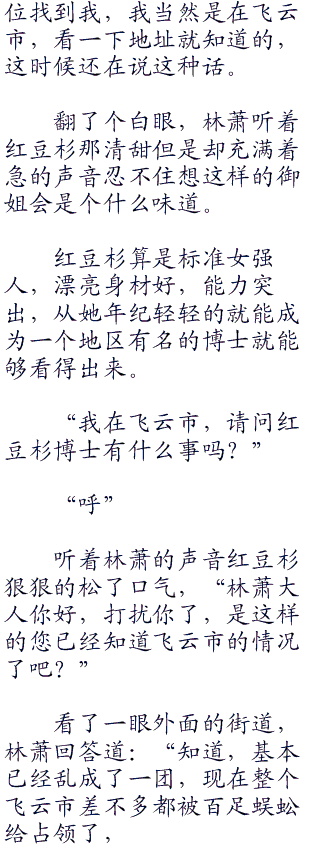 位找到我，我当然是在飞云
市，看一下地址就知道的，
这时候还在说这种话。
翻了个白眼，林萧听着
红豆杉那清甜但是却充满着
急的声音忍不住想这样的御
姐会是个什么味道。
红豆杉算是标准女强
人，漂亮身材好，能力突
出，从她年纪轻轻的就能成
为一个地区有名的博士就能
够看得出来。
“我在飞云市，请问红
豆杉博士有什么事吗？”
“呼”
听着林萧的声音红豆杉
狠狠的松了口气，“林萧大
人你好，打扰你了，是这样
的您已经知道飞云市的情况
了吧？”
看了一眼外面的街道，
林萧回答道：“知道，基本
已经乱成了一团，现在整个
飞云市差不多都被百足蜈蚣
给占领了，